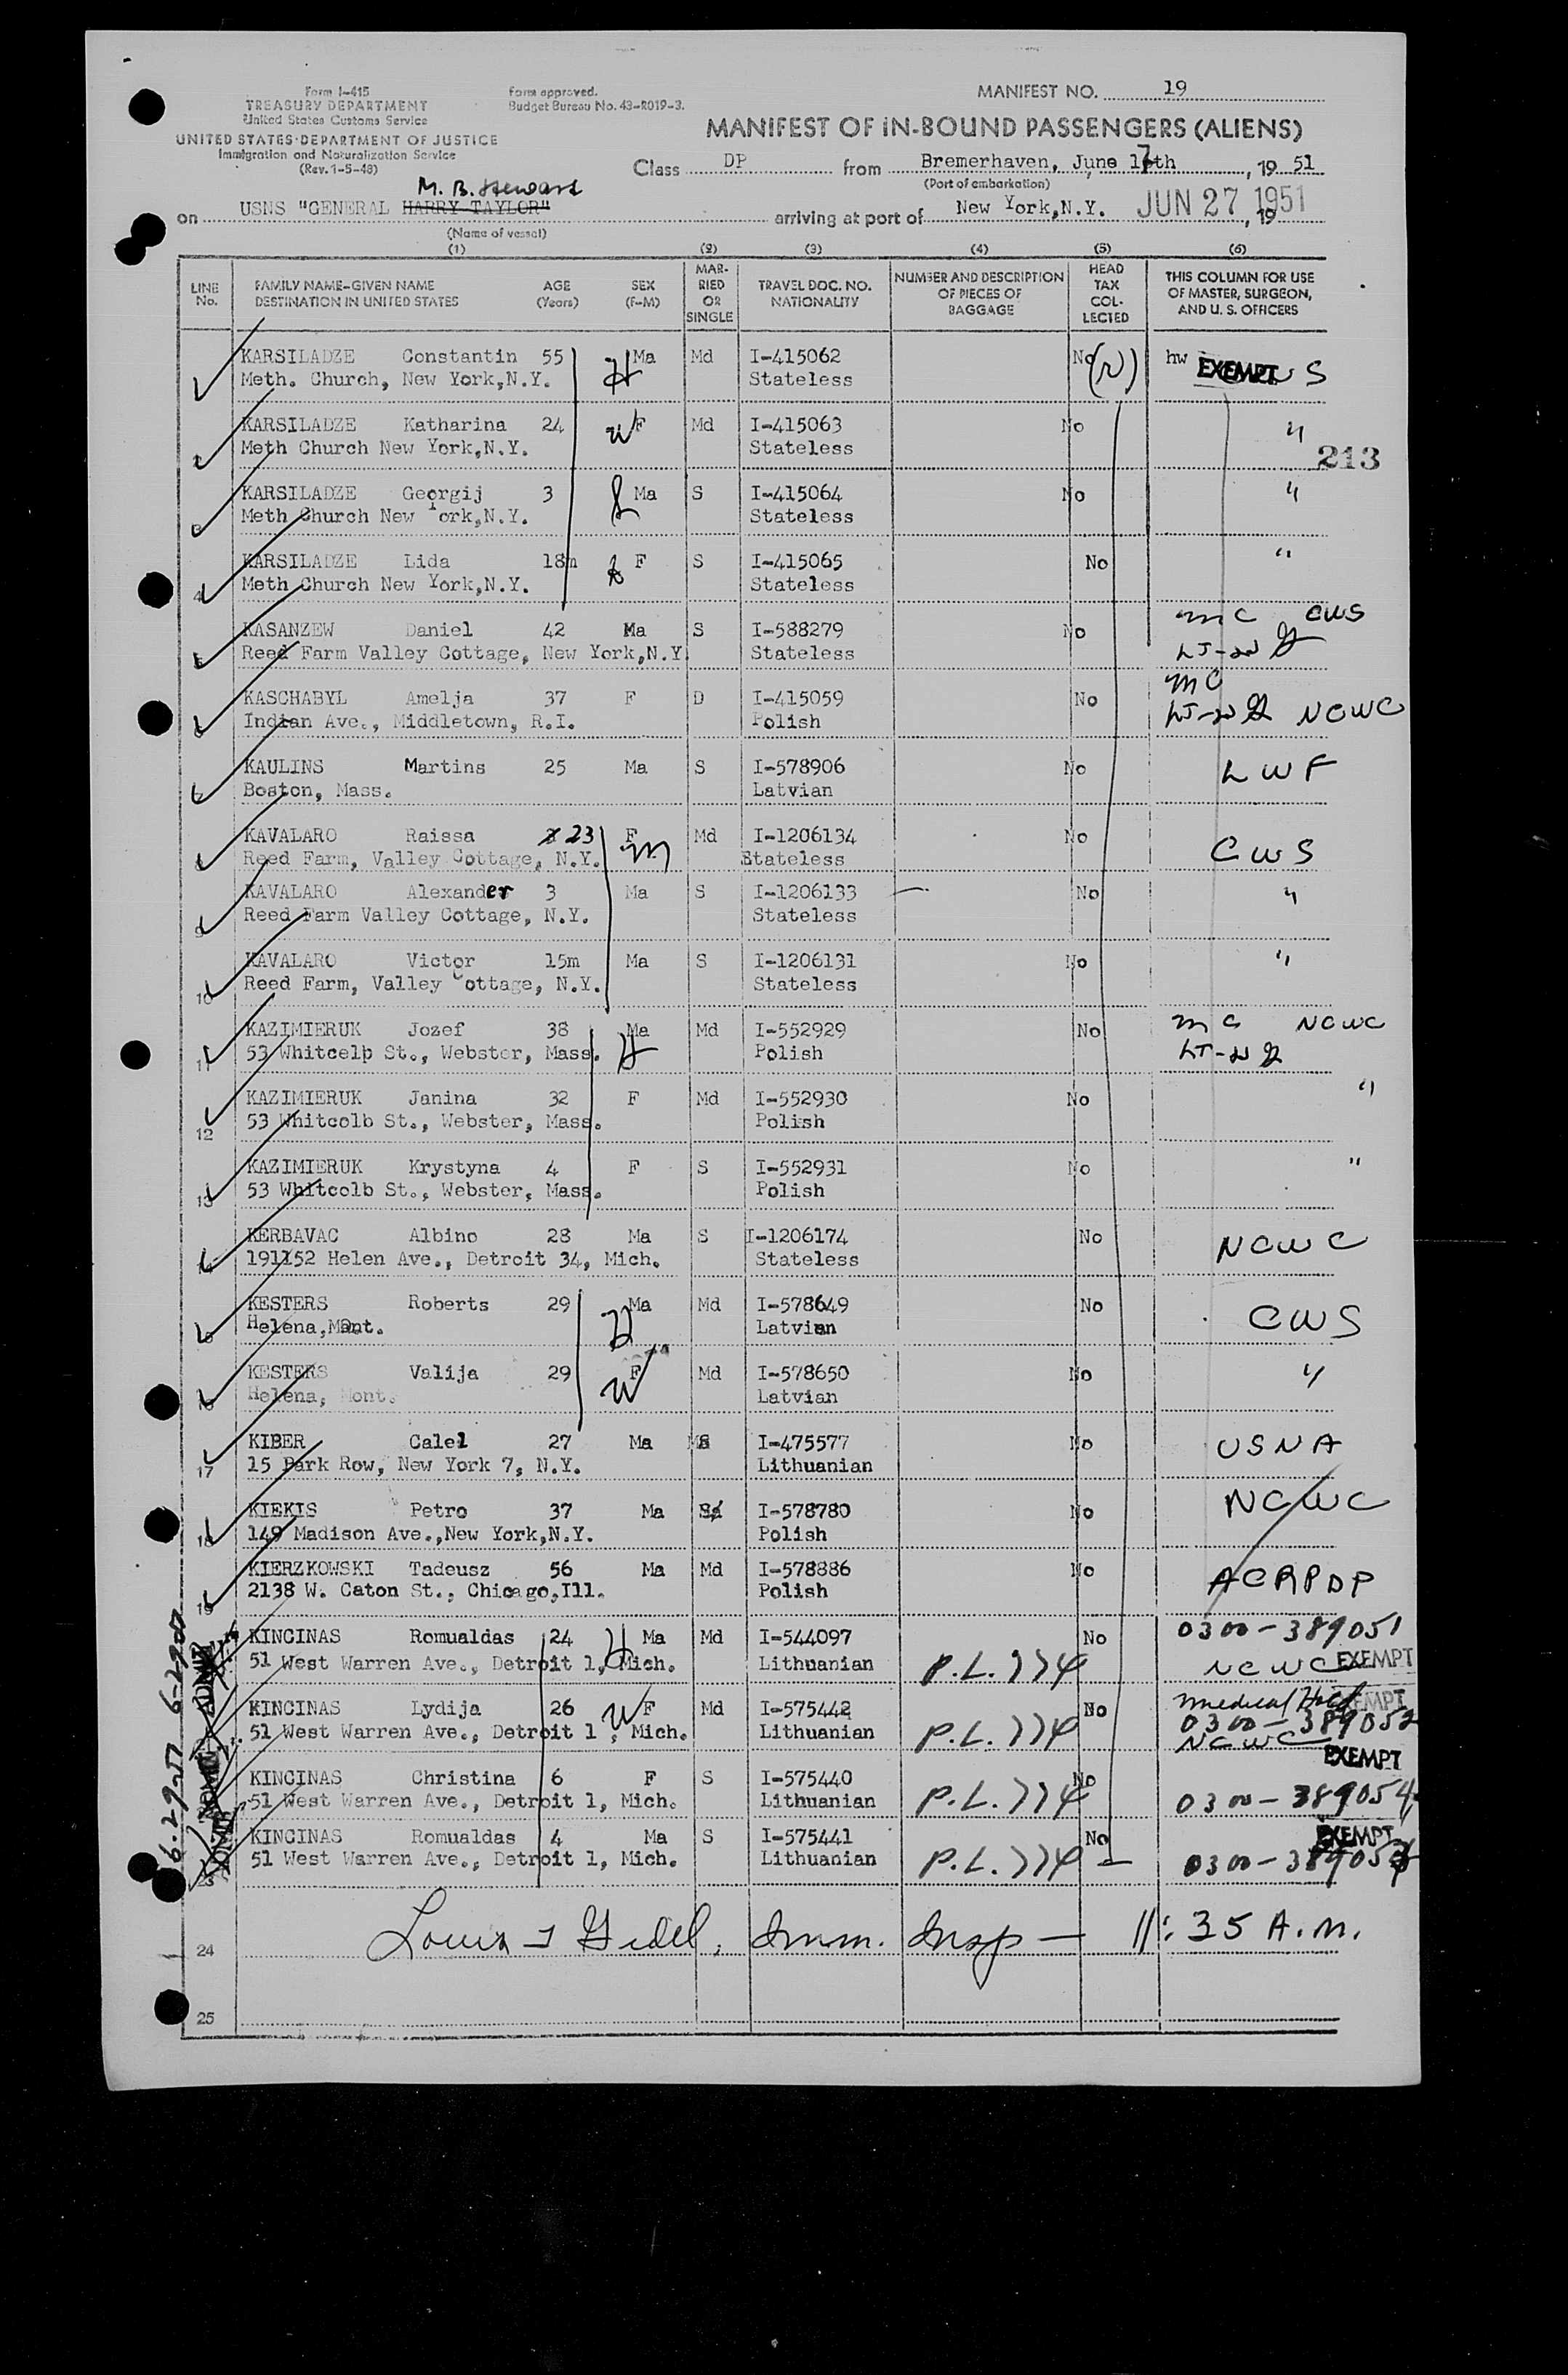 Form I-415
TREASURY DEPARTMENT
United States Customs Service
UNITED STATES DEPARTMENT OF JUSTICE
Immigration and Naturalization Service
(Rev. 1-5-48)
Form approved.
Budget Bureau No. 43-R019-3.
MANIFEST NO. 19
MANIFEST OF IN-BOUND PASSENGERS (ALIENS)
Class DP from Bremerhaven, June 17th, 19 51
(Port of embarkation)
M. B. Stewart
on USNS "GENERAL HARRY TAYLOR" arriving at port of New York, N.Y. JUN 27 1951, 19
(Name of vessel)
(1) (2) (3) (4) (5) (6)
LINE No. FAMILY NAME-GIVEN NAME DESTINATION IN UNITED STATES AGE (Years) SEX (F-M) MAR-RIED OR SINGLE TRAVEL DOC. NO. NATIONALITY NUMBER AND DESCRIPTION OF PIECES OF BAGGAGE HEAD TAX COL-LECTED THIS COLUMN FOR USE OF MASTER, SURGEON, AND U. S. OFFICERS
KARSILADZE Constantin 55 H Ma Md I-415062 No (N) hw EXEMPT
Meth. Church, New York,N.Y. Stateless
KARSILADZE Katharina 24 W F Md I-415063 No "
Meth Church New York,N.Y. Stateless
213
3 KARSILADZE Georgij 3 Ma S I-415064 No "
Meth Church New York,N.Y. Stateless
4 KARSILADZE Lida 18m F S I-415065 No "
Meth Church New York,N.Y. Stateless
5 KASANZEW Daniel 42 Ma S I-588279 No MC CWS
Reed Farm Valley Cottage, New York,N.Y. Stateless
6 KASCHABYL Amelja 37 F D I-415059 No MC
Indian Ave., Middletown, R.I. Polish NCWC
7 KAULINS Martins 25 Ma S I-578906 No LWF
Boston, Mass. Latvian
8 KAVALARO Raissa 23 F Md I-1206134 No CWS
Reed Farm, Valley Cottage, N.Y. M Stateless
9 KAVALARO Alexander 3 Ma S I-1206133 No "
Reed Farm Valley Cottage, N.Y. Stateless
10 KAVALARO Victor 15m Ma S I-1206131 No "
Reed Farm, Valley Cottage, N.Y. Stateless
11 KAZIMIERUK Jozef 38 Ma Md I-552929 No MC NCWC
53 Whitcelp St., Webster, Mass. H Polish
12 KAZIMIERUK Janina 32 F Md I-552930 No "
53 Whitcolb St., Webster, Mass. Polish
13 KAZIMIERUK Krystyna 4 F S I-552931 No "
53 Whitcolb St., Webster, Mass. Polish
14 KERBAVAC Albino 28 Ma S I-1206174 No NCWC
191152 Helen Ave., Detroit 34, Mich. Stateless
15 KESTERS Roberts 29 Ma Md I-578649 No CWS
Helena,Mont. H Latvian
16 KESTERS Valija 29 F Md I-578650 No "
Helena, Mont. W Latvian
17 KIBER Calel 27 Ma S I-475577 No USNA
15 Park Row, New York 7, N.Y. Lithuanian
18 KIEKIS Petro 37 Ma I-578780 No NCWC
149 Madison Ave.,New York,N.Y. Polish
19 KIERZKOWSKI Tadeusz 56 Ma Md I-578886 No ACRPDP
2138 W. Caton St., Chicago,Ill. Polish
KINCINAS Romualdas 24 H Ma Md I-544097 No 0300-389051
51 West Warren Ave., Detroit 1, Mich. Lithuanian P.L. 774 NCWC EXEMPT
KINCINAS Lydija 26 W F Md I-575442 No Medical Hold EXEMPT
51 West Warren Ave., Detroit 1, Mich. Lithuanian P.L. 774 0300-389052
NCWC
EXEMPT
KINCINAS Christina 6 F S I-575440 No
51 West Warren Ave., Detroit 1, Mich. Lithuanian P.L. 774 0300-389054
EXEMPT
23 KINCINAS Romualdas 4 Ma S I-575441 No
51 West Warren Ave., Detroit 1, Mich. Lithuanian P.L. 774 - 0300-38905
24 Imm. Insp - 11:35 A.M.
25